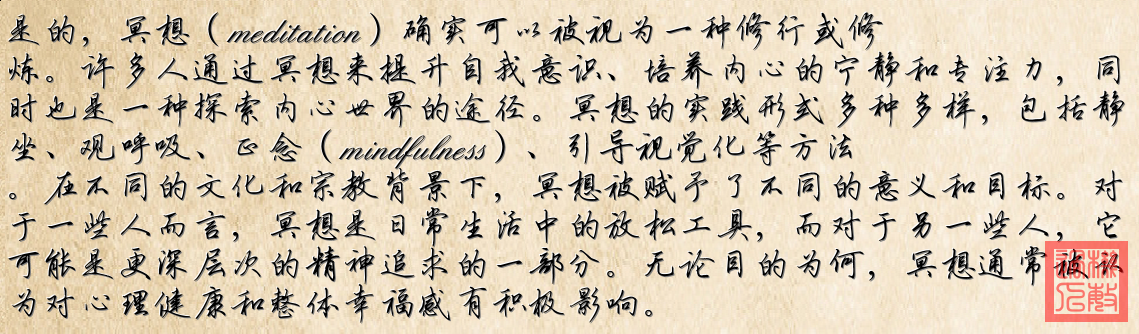 是的，冥想（meditation）确实可以被视为一种修行或修
炼。许多人通过冥想来提升自我意识、培养内心的宁静和专注力，同
时也是一种探索内心世界的途径。冥想的实践形式多种多样，包括静
坐、观呼吸、正念（mindfulness）、引导视觉化等方法
。在不同的文化和宗教背景下，冥想被赋予了不同的意义和目标。对
于一些人而言，冥想是日常生活中的放松工具，而对于另一些人，它
可能是更深层次的精神追求的一部分。无论目的为何，冥想通常被认
为对心理健康和整体幸福感有积极影响。